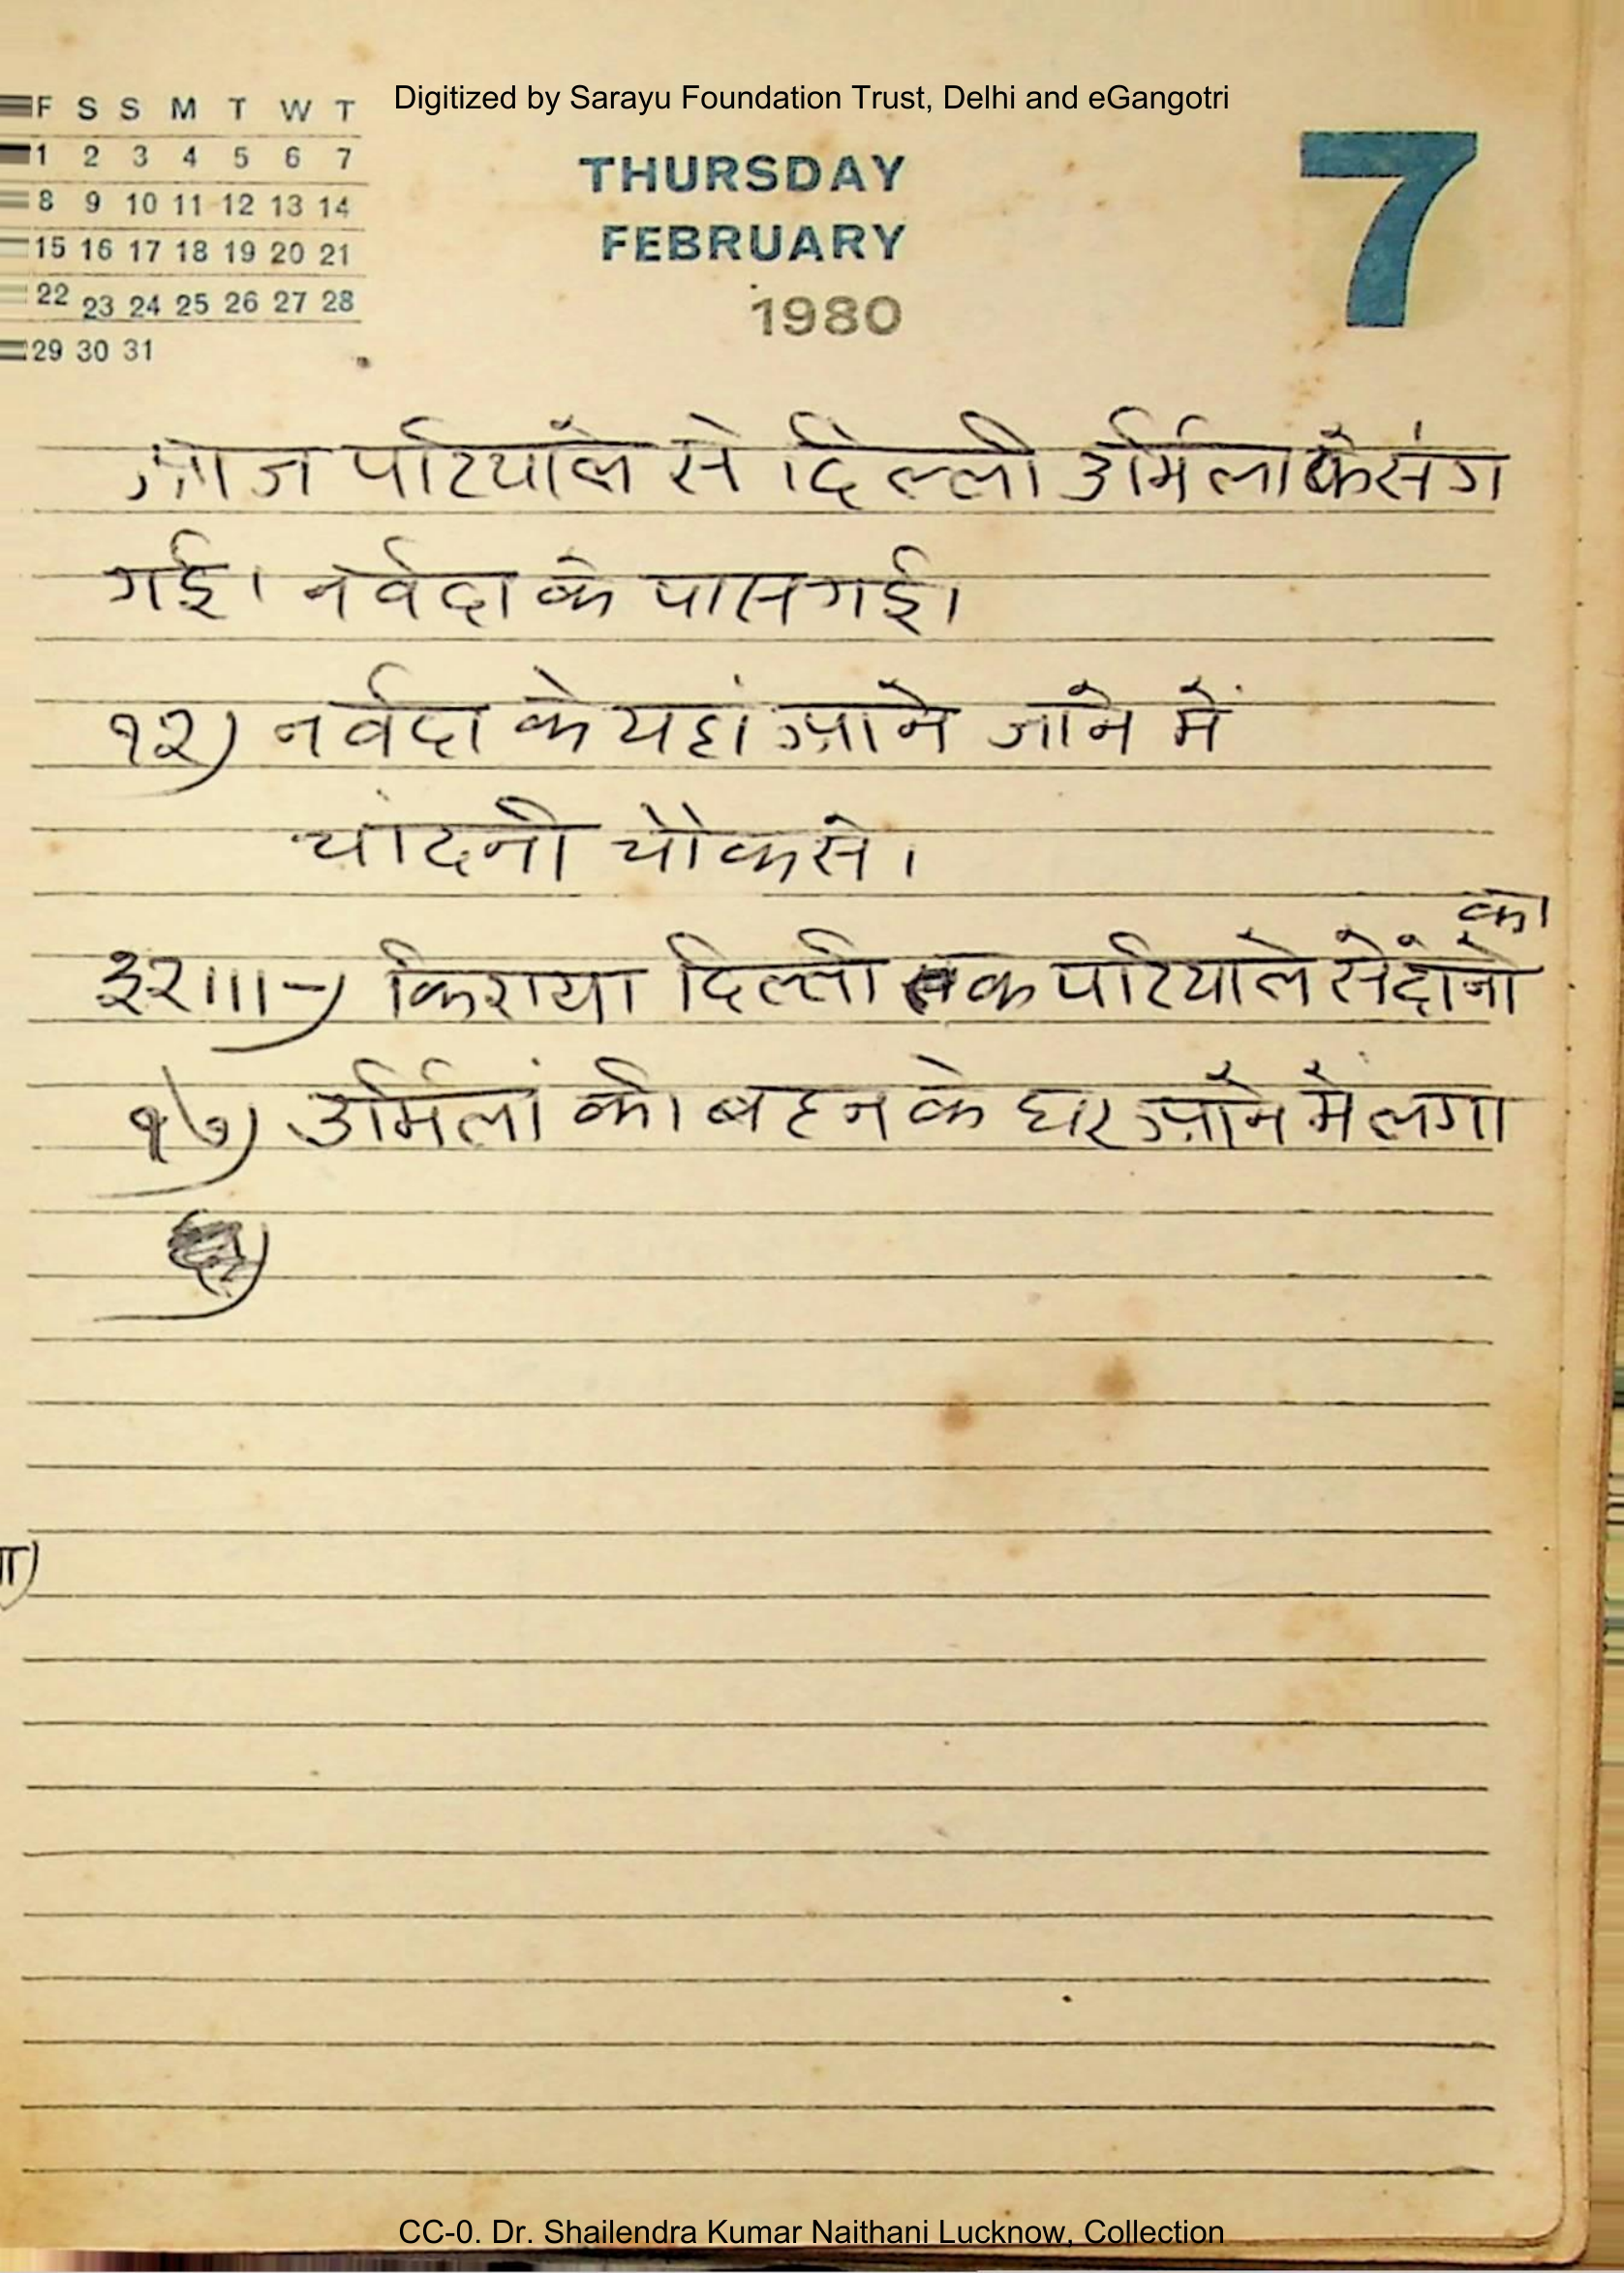 Digitized by Sarayu Foundation Trust, Delhi and eGangotri
F S S M T W T
1 2 3 4 5 6 7
8 9 10 11 12 13 14
15 16 17 18 19 20 21
22 23 24 25 26 27 28
29 30 31
THURSDAY
FEBRUARY
1980
7
आज पटियाले से दिल्ली उर्मिला के संग
गई। नर्वदा के पास गई।
१२) नर्वदा के यहां आने जाने में
चांदनी चौक से।
का
३२॥।-) किराया दिल्ली तक पटियाले से दोनो
१७) उर्मिलां की बहन के घर आने में लगा
CC-0. Dr. Shailendra Kumar Naithani Lucknow, Collection